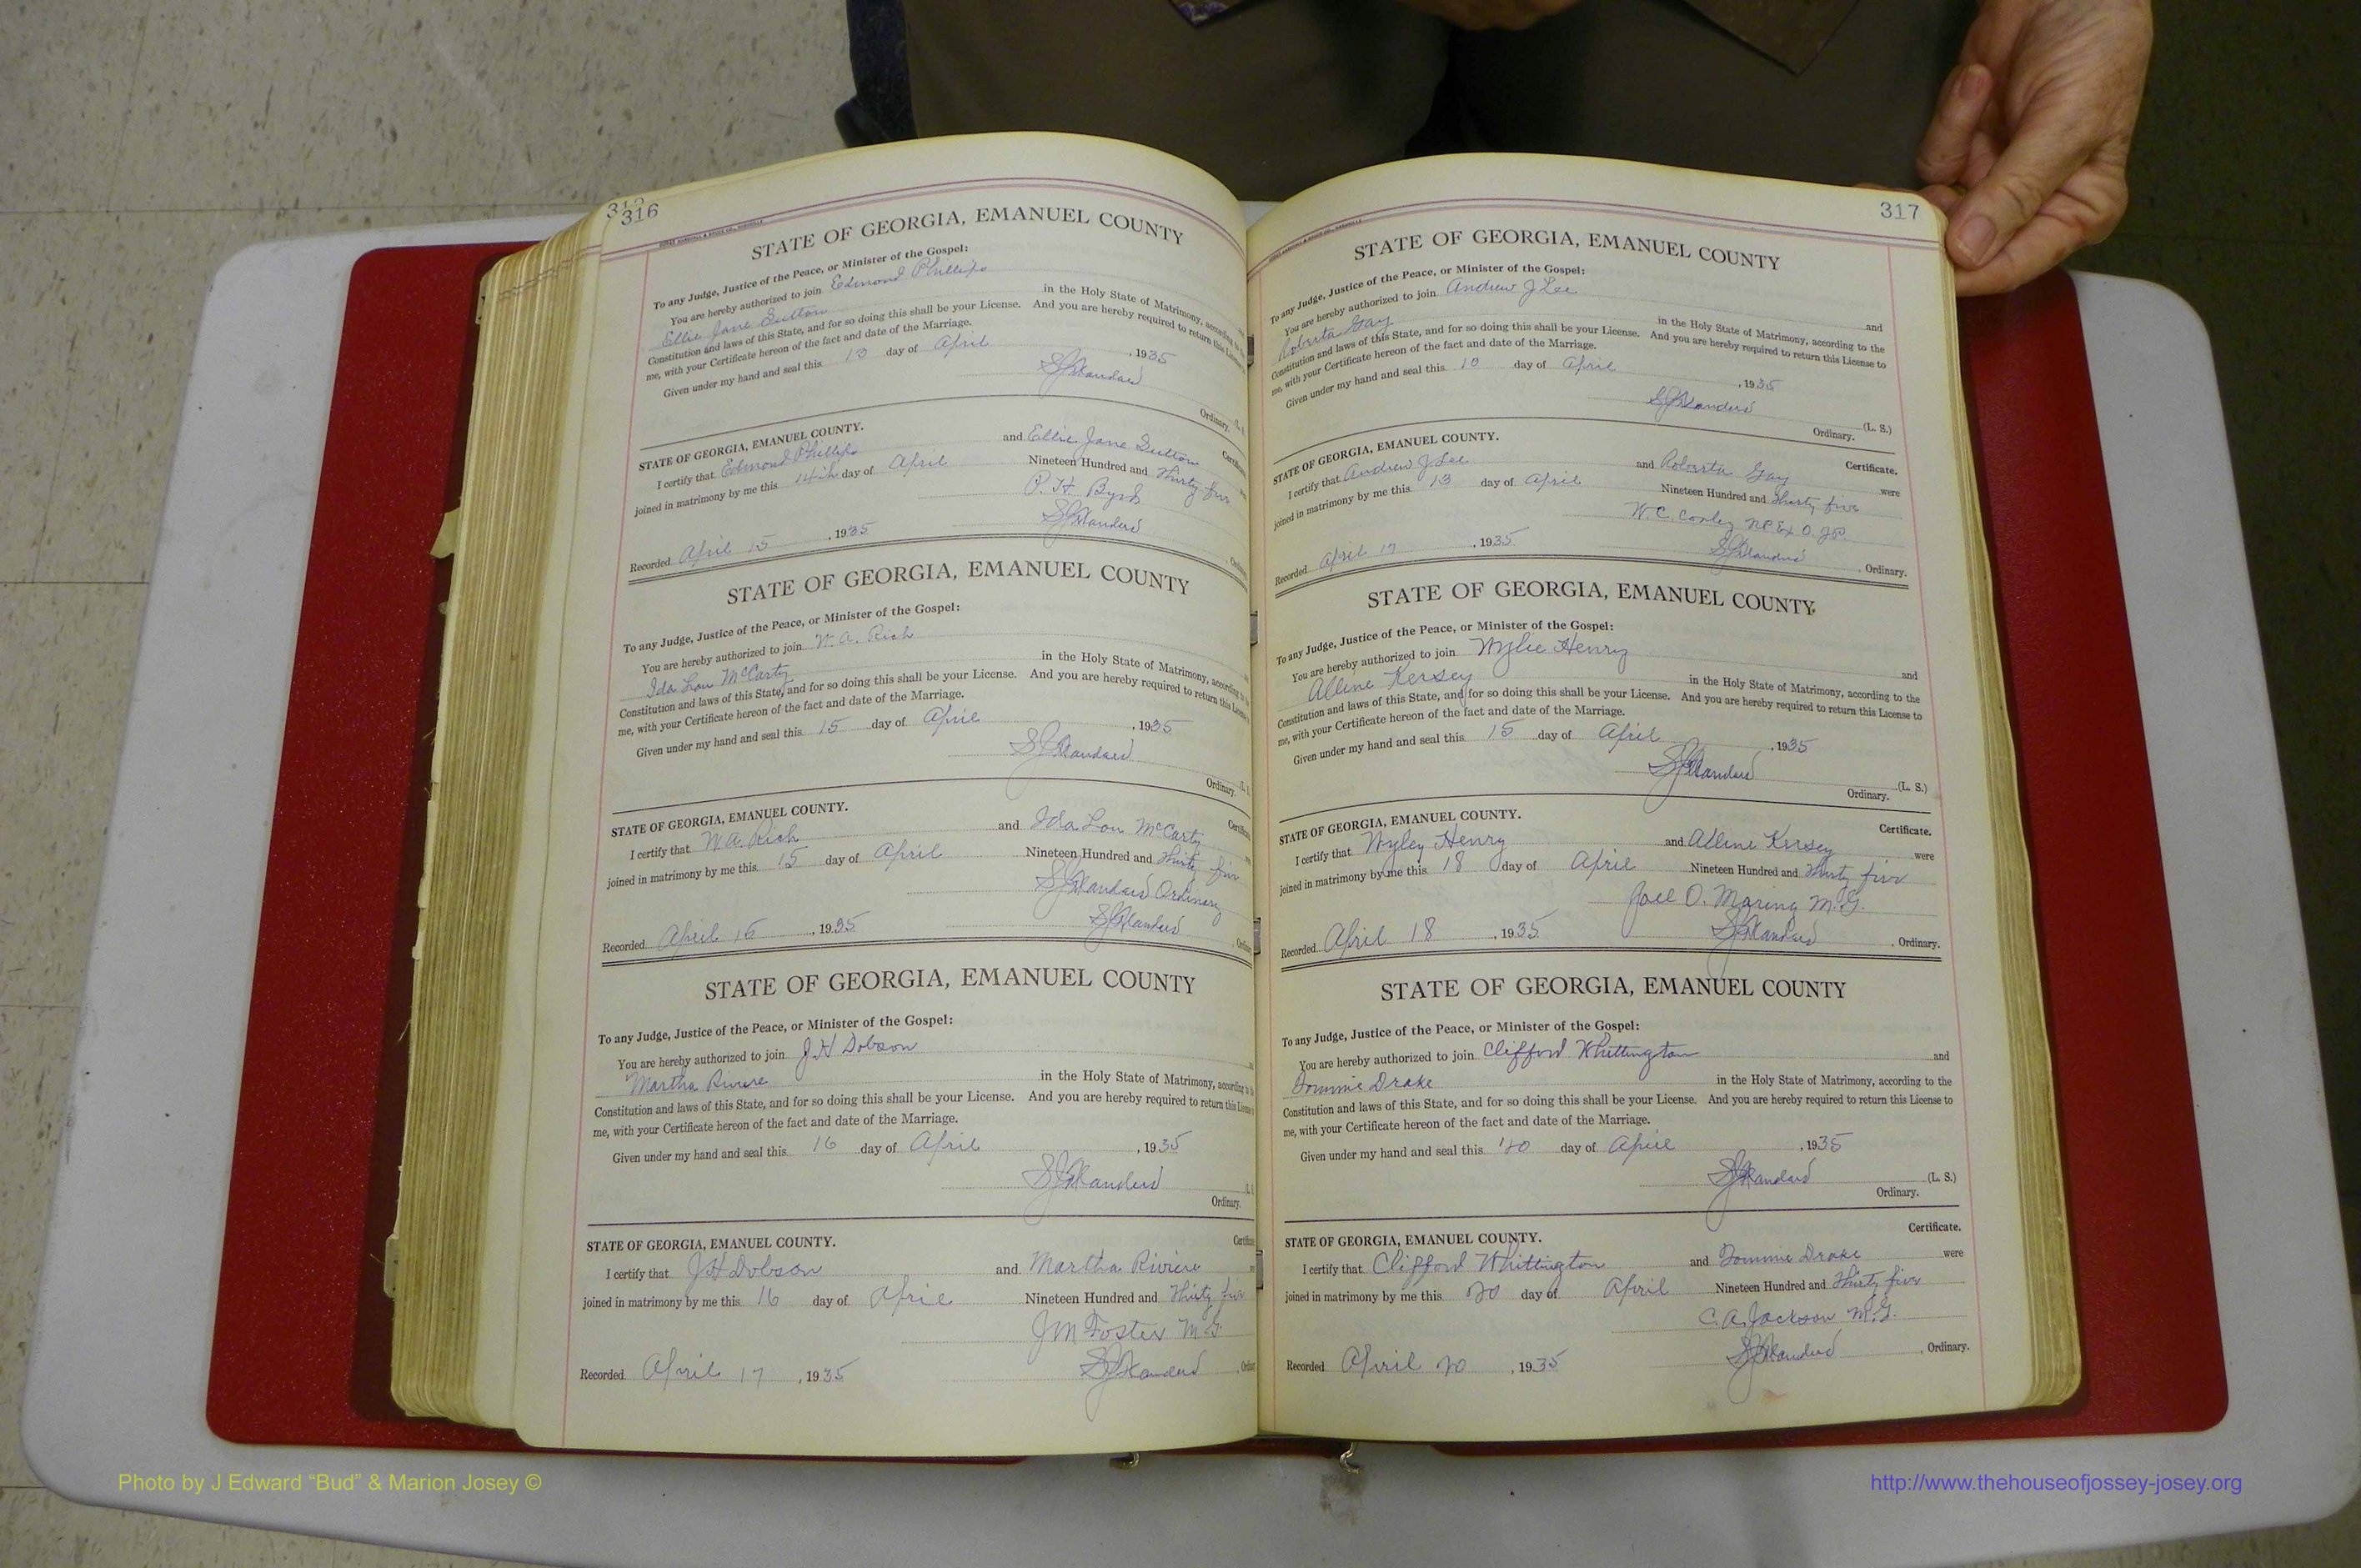 312
316
STATE OF GEORGIA, EMANUEL COUNTY
To any Judge, Justice of the Peace, or Minister of the Gospel:
You are hereby authorized to join Edmond Phillips
Ellie Jane Sutton in the Holy State of Matrimony, according to the
Constitution and laws of this State, and for so doing this shall be your License. And you are hereby required to return this License
me, with your Certificate hereon of the fact and date of the Marriage.
Given under my hand and seal this 13 day of April, 1935
Ordinary.
STATE OF GEORGIA, EMANUEL COUNTY.
Certificate
I certify that Edmond Phillips and Ellie Jane Sutton
joined in matrimony by me this 14th day of April Nineteen Hundred and Thirty five
P. H. Byrd
Recorded April 15, 1935
STATE OF GEORGIA, EMANUEL COUNTY
To any Judge, Justice of the Peace, or Minister of the Gospel:
You are hereby authorized to join W. A. Rich
Ida Lou McCarty in the Holy State of Matrimony, according to
Constitution and laws of this State, and for so doing this shall be your License. And you are hereby required to return this License
me, with your Certificate hereon of the fact and date of the Marriage.
Given under my hand and seal this 15 day of April, 1935
Ordinary.
STATE OF GEORGIA, EMANUEL COUNTY.
I certify that W A Rich and Ida Lou McCarty
joined in matrimony by me this 15 day of April Nineteen Hundred and Thirty five
Ordinary
Recorded April 15, 1935
STATE OF GEORGIA, EMANUEL COUNTY
To any Judge, Justice of the Peace, or Minister of the Gospel:
You are hereby authorized to join J H Dobson
Martha Riviere in the Holy State of Matrimony, according to
Constitution and laws of this State, and for so doing this shall be your License. And you are hereby required to return this License
me, with your Certificate hereon of the fact and date of the Marriage.
Given under my hand and seal this 16 day of April, 1935
Ordinary.
STATE OF GEORGIA, EMANUEL COUNTY.
I certify that J H Dobson and Martha Riviere
joined in matrimony by me this 16 day of April Nineteen Hundred and Thirty five
J M Foster M G
Recorded April 17, 1935
317
STATE OF GEORGIA, EMANUEL COUNTY
To any Judge, Justice of the Peace, or Minister of the Gospel:
You are hereby authorized to join Andrew J Lee and
Roberta Gay in the Holy State of Matrimony, according to the
Constitution and laws of this State, and for so doing this shall be your License. And you are hereby required to return this License to
me, with your Certificate hereon of the fact and date of the Marriage.
Given under my hand and seal this 10 day of April, 1935
(L. S.)
Ordinary.
STATE OF GEORGIA, EMANUEL COUNTY.
Certificate.
I certify that Andrew J Lee and Roberta Gay were
joined in matrimony by me this 13 day of April Nineteen Hundred and Thirty five
W. C. NP Ex O. JP.
Recorded April 17, 1935 Ordinary.
STATE OF GEORGIA, EMANUEL COUNTY
To any Judge, Justice of the Peace, or Minister of the Gospel:
You are hereby authorized to join Wylie Henry and
Alline Kersey in the Holy State of Matrimony, according to the
Constitution and laws of this State, and for so doing this shall be your License. And you are hereby required to return this License to
me, with your Certificate hereon of the fact and date of the Marriage.
Given under my hand and seal this 15 day of April, 1935
(L. S.)
Ordinary.
STATE OF GEORGIA, EMANUEL COUNTY.
Certificate.
I certify that Wyley Henry and Alline Kersey were
joined in matrimony by me this 18 day of April Nineteen Hundred and Thirty five
Joel O. M. G.
Recorded April 18, 1935 Ordinary.
STATE OF GEORGIA, EMANUEL COUNTY
To any Judge, Justice of the Peace, or Minister of the Gospel:
You are hereby authorized to join Clifford Whittington and
Tommie Drake in the Holy State of Matrimony, according to the
Constitution and laws of this State, and for so doing this shall be your License. And you are hereby required to return this License to
me, with your Certificate hereon of the fact and date of the Marriage.
Given under my hand and seal this 20 day of April, 1935
(L. S.)
Ordinary.
Certificate.
STATE OF GEORGIA, EMANUEL COUNTY.
I certify that Clifford Whittington and Tommie Drake were
joined in matrimony by me this 20 day of April Nineteen Hundred and Thirty five
C. A. Jackson M. G.
Recorded April 20, 1935 Ordinary.
Photo by J Edward “Bud” & Marion Josey ©
http://www.thehouseofjossey-josey.org